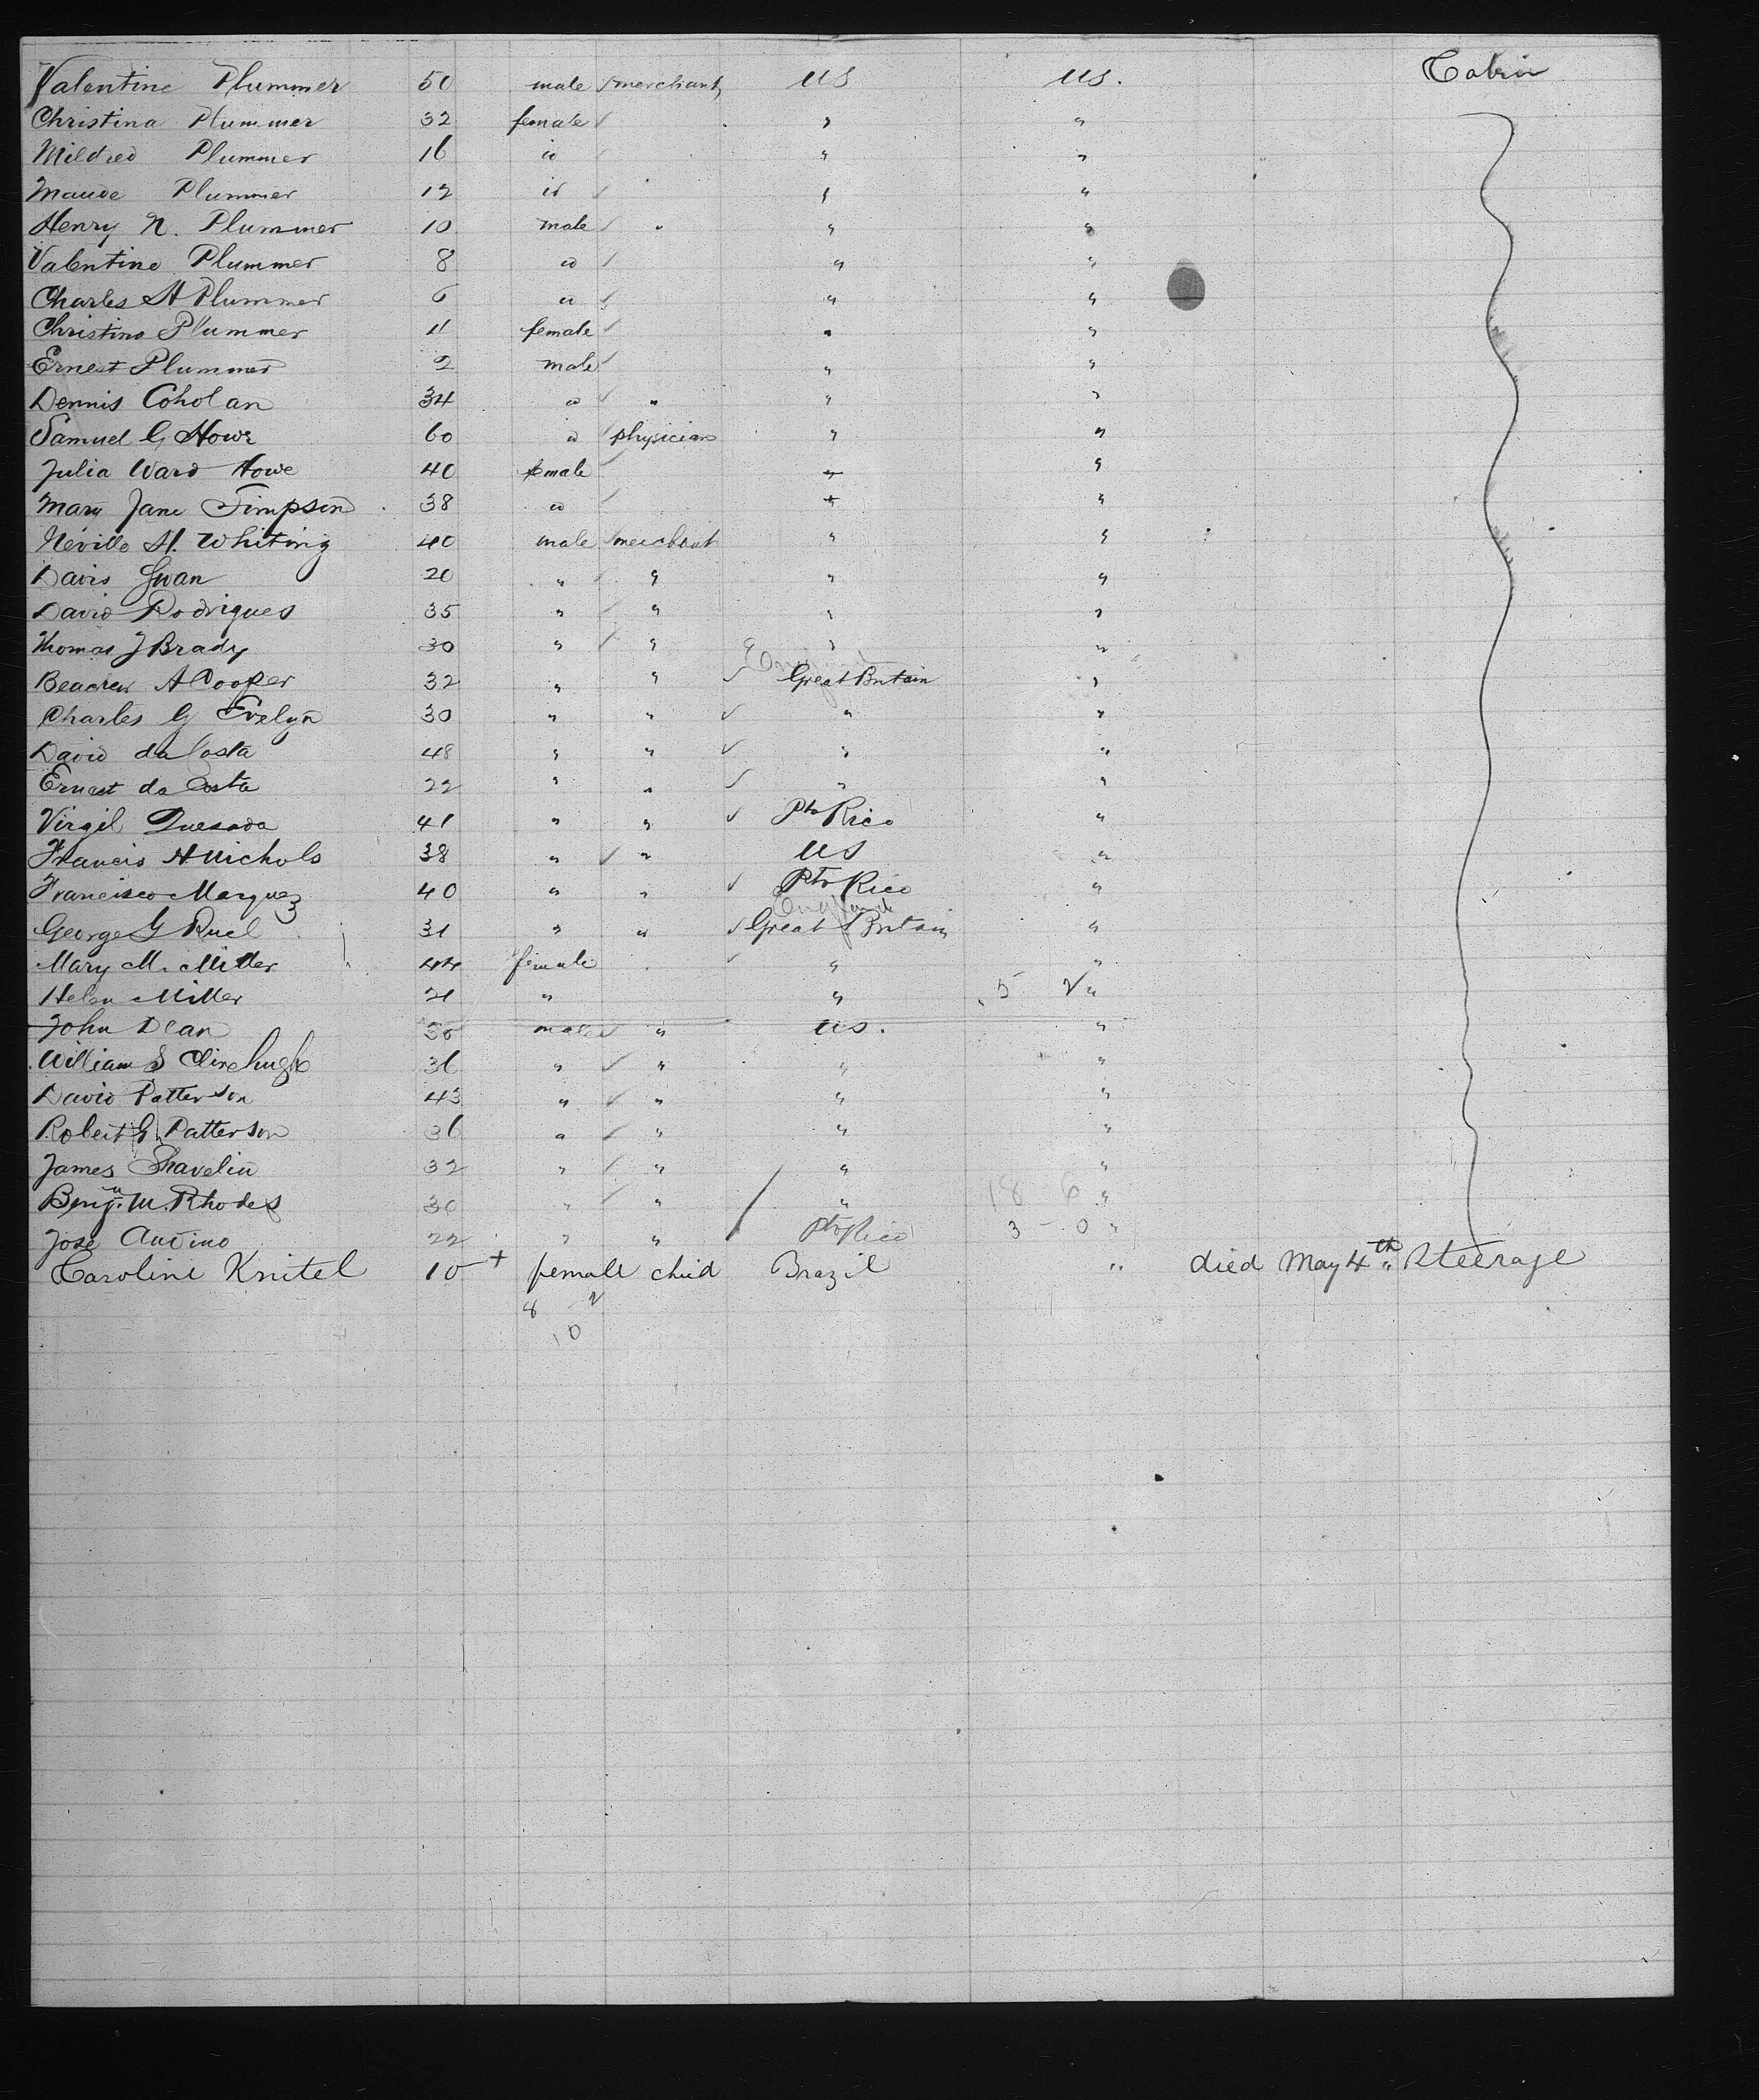 Valentine Plummer 50 male ✓ merchant US US. Cabin
Christina Plummer 32 female ✓ " "
Mildred Plummer 16 id ✓ " "
Maude Plummer 12 id ✓ " "
Henry N. Plummer 10 male ✓ " " "
Valentine Plummer 8 id ✓ " "
Charles H Plummer 6 id ✓ " "
Christina Plummer 4 female ✓ " "
Ernest Plummer 2 male ✓ " "
Dennis Coholan 34 id ✓ " " "
Samuel G Howe 60 id ✓ physician " "
Julia Ward Howe 40 female ✓ " "
Mary Jane Timpson 38 id ✓ " "
Neville H. Whiting 40 male ✓ merchant " "
Davis Swan 20 " ✓ " " "
David Rodrigues 35 " ✓ " " "
Thomas J Brady 30 " ✓ " " "
A Cooper 32 " " ✓ Great Britain "
Charles G Evelyn 30 " " ✓ " "
David da Costa 48 " " ✓ " "
Ernest da Costa 22 " " ✓ " "
Virgil Quesada 41 " " ✓ Pto Rico "
Francis H Nichols 38 " ✓ " US "
Francisco Marquez 40 " " ✓ Pto Rico "
England
George G Ruel 31 " " ✓ Great Britain "
Mary M. Miller 44 female ✓ " "
Helen Miller 21 " " 5 ✓ "
John Dean 30 male ✓ " US. "
William S 36 " ✓ " " "
David Patterson 43 " ✓ " " "
Robert G. Patterson 36 " ✓ " " "
James Shavelin 32 " ✓ " " "
Benjn. M. Rhodes 30 " ✓ " " 18 6 "
José Audino 22 " " Pto Rico 3 - 0 "
Caroline Knitel 10 + female child Brazil " died May 4th Steerage
8 2
10